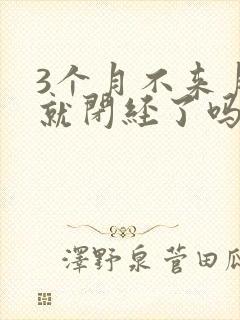 3个月不来
就閉経了吗
澤野泉菅田